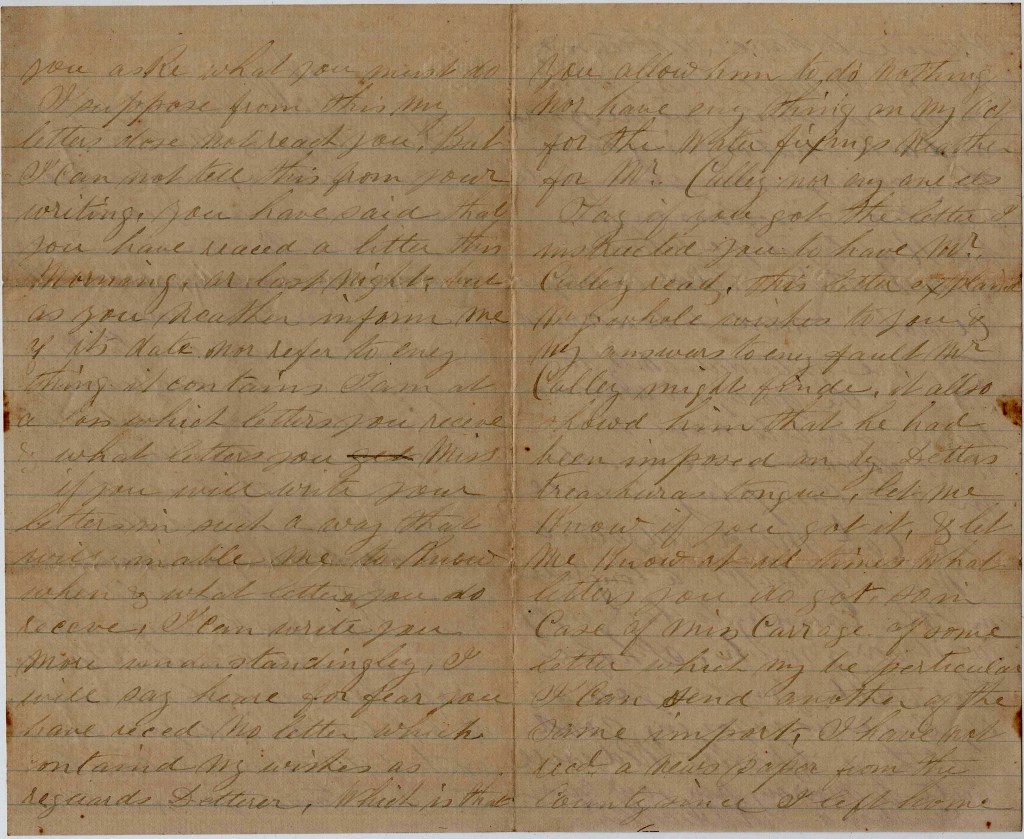 you aske what you must do
I suppose from this my
letters dose not reach you, But
I Can not tell this from your
writing, you have said that
you have reaced a letter this
Morning, or last night, but
as you neather inform me
of its date nor refer to eney
thing it contains I am at
a loss which letters you receive
& what letters you Miss
if you will write your
letters in such a way that
will inable me to Know
when & what letters you do
receve, I Can write you
More understandingley, I
will say heare for fear you
have reced no letter which
containd my wishes as
regards Detterer, Which is that
you allow him to do nothing
nor have eny thing on my lot
for the Water fixings Neather
for Mr. Culley nor eny one els
if you got the letter I
instructed you to have Mr.
Culley read, this letter explaind
my whole wishes to you &
my answers to eny fault Mr
Culley might finde, it allso
showd him that he had
been imposed on by Detters
treachuras tongue, let me
Know if you got it, & let
me Know at all times what
letters you do got, so in
Case of Miss Carrage of some
letter which my be perticular
I Can Send another of the
same import, I have not
recd a news paper from the
County since I left home